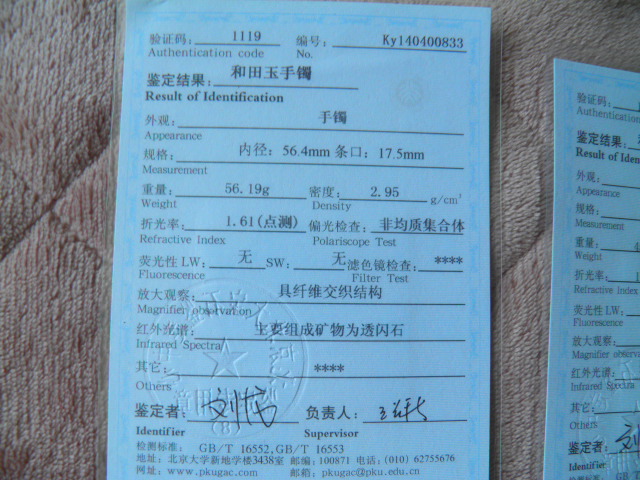 验证码: 1119 编号: Ky140400833
Authentication code No.
鉴定结果: 和田玉手镯
Result of Identification
外观: 手镯
Appearance
规格: 内径: 56.4mm 条口: 17.5mm
Measurement
重量: 56.19g 密度: 2.95 g/cm³
Weight Density
折光率: 1.61(点测) 偏光检查: 非均质集合体
Refractive Index Polariscope Test
荧光性 LW: 无 SW: 无 滤色镜检查: ****
Fluorescence Filter Test
放大观察: 具纤维交织结构
Magnifier observation
红外光谱: 主要组成矿物为透闪石
Infrared Spectra
其它: ****
Others
鉴定者: 负责人:
Identifier Supervisor
检测标准: GB/T 16552,GB/T 16553
地址: 北京大学新地学楼3438室 邮编: 100871 电话: (010) 62755676
网址: www.pkugac.com 邮箱: pkugac@pku.edu.cn
验证码:
Authentication
鉴定结果:
Result of Identi
外观:
Appearance
规格:
Measurement
重量:
Weight
折光率:
Refractive Index
荧光性 LW:
Fluorescence
放大观察:
Magnifier obser
红外光谱:
Infrared Spectra
其它:
Others
鉴定者:
Identifier
检测标准: G
地址: 北京大学
网址: www.p